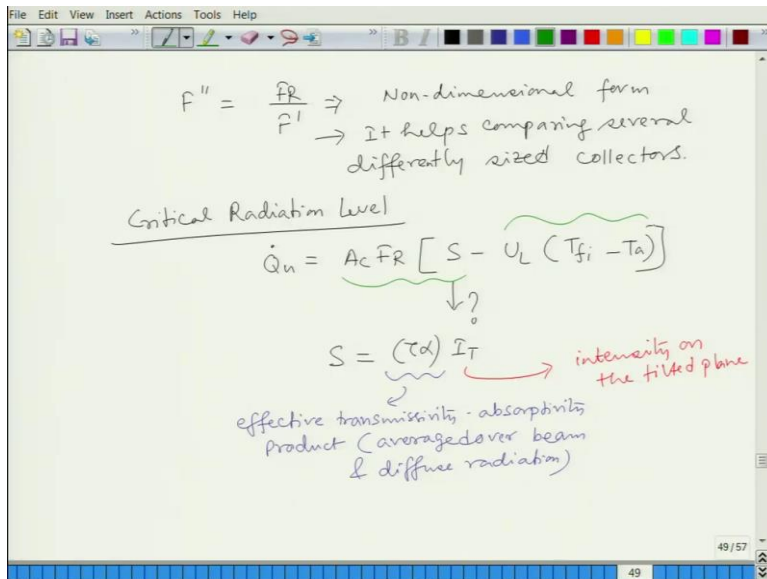 File Edit View Insert Actions Tools Help
B I
F'' = FR / F' ⇒ Non-dimensional form
→ It helps comparing several
differently sized collectors.
Critical Radiation Level
Q̇u = Ac FR [ S - UL (Tfi - Ta) ]
?
S = (τα) IT
intensity on
the tilted plane
effective transmissivity - absorptivity
product (averaged over beam
& diffuse radiation)
49/57
49